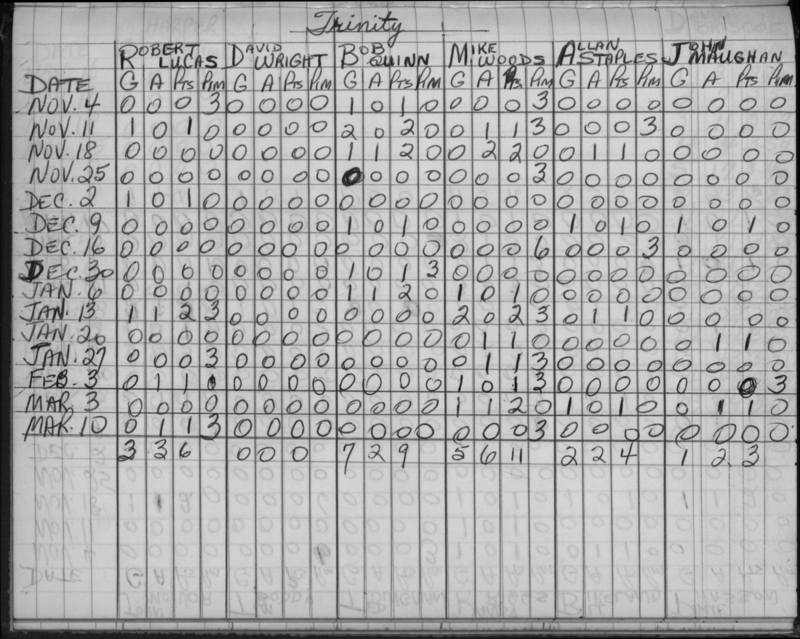 Trinity
ROBERT LUCAS DAVID WRIGHT BOB QUINN MIKE WOODS ALLAN STAPLES JOHN MAUGHAN
DATE G A Pts Pim G A Pts Pim G A Pts Pim G A Pts Pim G A Pts Pim G A Pts Pim
NOV. 4 0 0 0 3 0 0 0 0 1 0 1 0 0 0 0 3 0 0 0 0 0 0 0 0
NOV. 11 1 0 1 0 0 0 0 0 2 0 2 0 0 1 1 3 0 0 0 3 0 0 0 0
NOV. 18 0 0 0 0 0 0 0 0 1 1 2 0 0 2 2 0 0 1 1 0 0 0 0 0
NOV. 25 0 0 0 0 0 0 0 0 0 0 0 0 0 0 0 3 0 0 0 0 0 0 0 0
DEC. 2 1 0 1 0 0 0 0 0 0 0 0 0 0 0 0 0 0 0 0 0 0 0 0 0
DEC. 9 0 0 0 0 0 0 0 0 1 0 1 0 0 0 0 0 1 0 1 0 1 0 1 0
DEC. 16 0 0 0 0 0 0 0 0 0 0 0 0 0 0 0 6 0 0 0 3 0 0 0 0
DEC. 30 0 0 0 0 0 0 0 0 1 0 1 3 0 0 0 0 0 0 0 0 0 0 0 0
JAN. 6 0 0 0 0 0 0 0 0 1 1 2 0 1 0 1 0 0 0 0 0 0 0 0 0
JAN. 13 1 1 2 3 0 0 0 0 0 0 0 0 2 0 2 3 0 1 1 0 0 0 0 0
JAN. 20 0 0 0 0 0 0 0 0 0 0 0 0 0 1 1 0 0 0 0 0 0 1 1 0
JAN. 27 0 0 0 3 0 0 0 0 0 0 0 0 0 1 1 3 0 0 0 0 0 0 0 0
FEB. 3 0 1 1 0 0 0 0 0 0 0 0 1 0 1 3 0 0 0 0 0 0 0 3
MAR. 3 0 0 0 0 0 0 0 0 0 0 0 0 1 1 2 0 1 0 1 0 0 1 1 0
MAR. 10 0 1 1 3 0 0 0 0 0 0 0 0 0 0 0 3 0 0 0 0 0 0 0 0
3 3 6 0 0 0 7 2 9 5 6 11 2 2 4 1 2 3